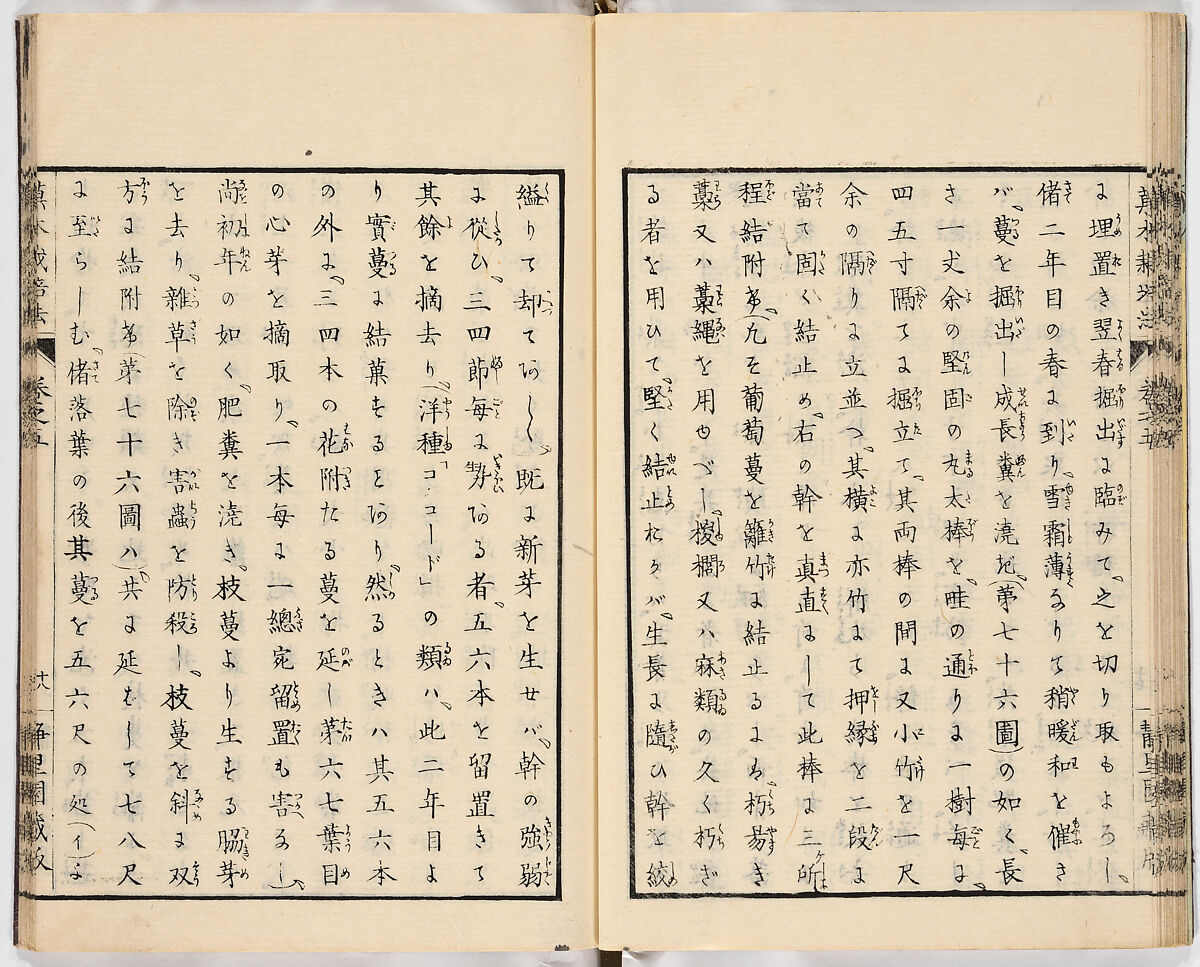 に埋置き翌春掘出に臨みて之を切り取もよろし
偖二年目の春に到り雪霜薄なりて稍暖和を催き
バ蔓を掘出し成長糞を澆ぎ(第七十六圖)の如く長
さ一丈余の堅固の丸太棒を畦の通りに一樹毎に
四五寸隔てに掘立て其両棒の間に又小竹を一尺
余の隔りに立並べ其横に亦竹にて押縁を二段に
當て固く結止め右の幹を真直にして此棒に三所
程結附け(凡そ葡萄蔓を籬竹に結止るにハ朽易き
藁又ハ藁縄を用ゆべし椶櫚又ハ麻類の久く朽ざ
る者を用ひて堅く結止れバ生長に隨ひ幹を絞
縊りて却てあしし)既に新芽を生せバ幹の強弱
に從ひ三四節毎に勢ある者五六本を留置きて
其餘を摘去り(洋種「コンコード」の類ハ此二年目よ
り實蔓に結菓するとあり然るときハ其五六本
の外に三四本の花附たる蔓を延し第六七葉目
の心芽を摘取り一本毎に一總宛留置も害なし)
尚初年の如く肥糞を澆き枝蔓より生ずる脇芽
を去り雜草を除き害蟲を防殺し枝蔓を斜に双
方に結附け(第七十六圖ハ)共に延ばして七八尺
に至らしむ偖落葉の後其蔓を五六尺の処(イ)よ
菓木栽培法
卷之五
十八
静里園蔵版